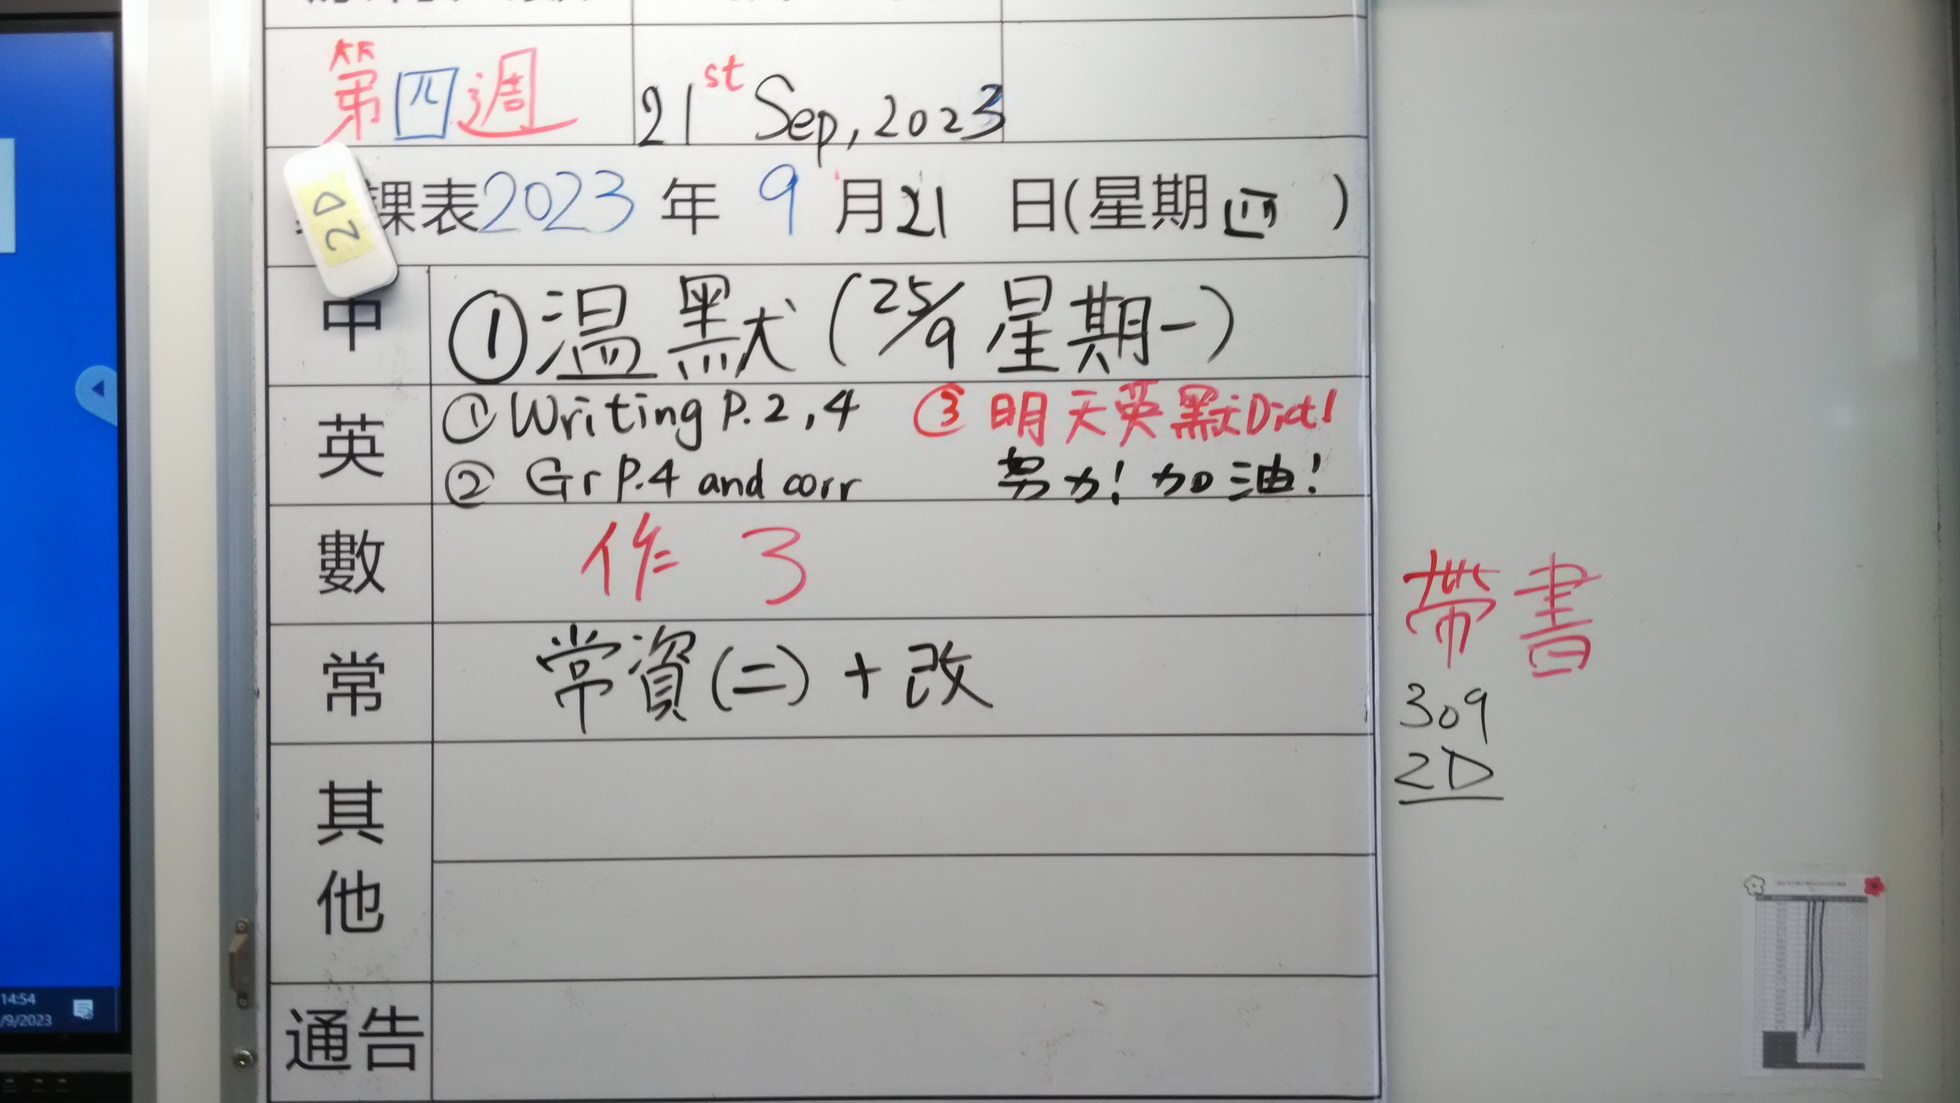 第四週 21st Sep, 2023
課表2023年9月21日(星期四)
2D
中 ①温默(25/9星期一)
英 ①Writing P.2,4 ③明天英默Dict!
②Gr P.4 and corr 努力!加油!
數 作3
常 常資(二)+改
其他
通告
帶書
309
2D
14:54
/9/2023